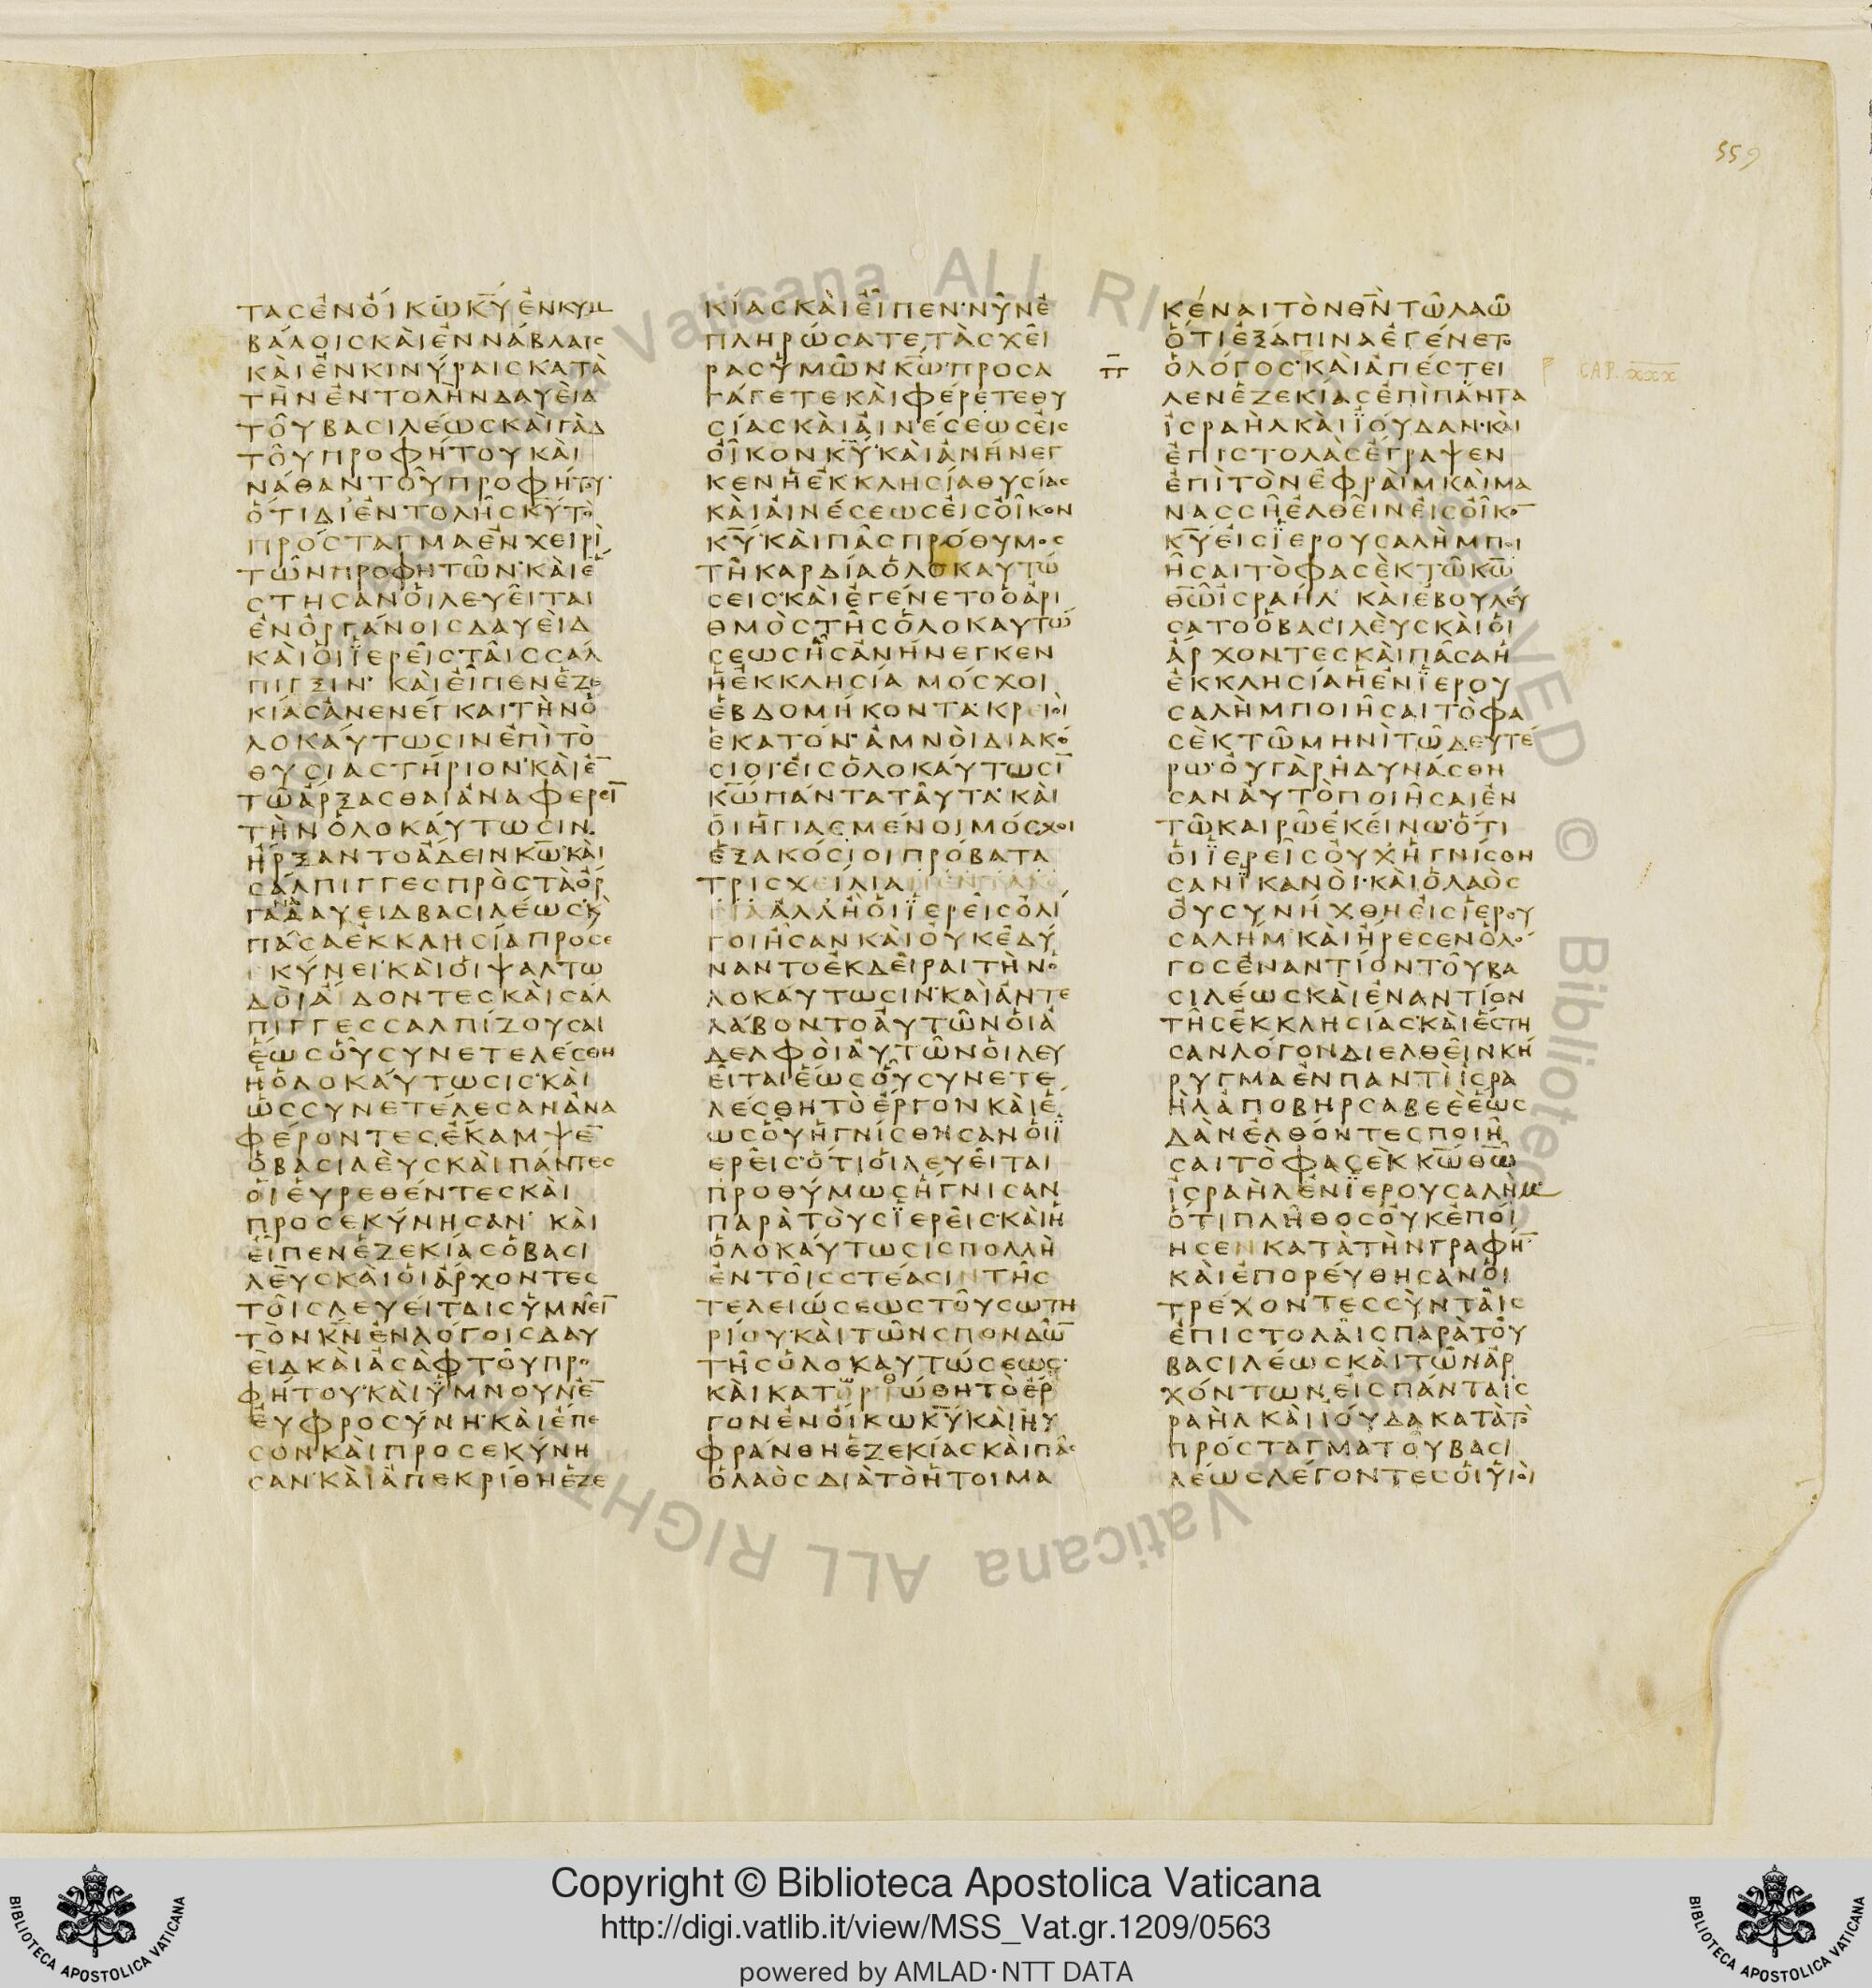 559
ΤΑϹΕΝΟΙΚΩΚΥΕΝΚΥΜ
ΒΑΛΟΙϹΚΑΙΕΝΝΑΒΛΑΙϹ
ΚΑΙΕΝΚΙΝΥΡΑΙϹΚΑΤΑ
ΤΗΝΕΝΤΟΛΗΝΔΑΥΕΙΔ
ΤΟΥΒΑϹΙΛΕΩϹΚΑΙΓΑΔ
ΤΟΥΠΡΟΦΗΤΟΥΚΑΙ
ΝΑΘΑΝΤΟΥΠΡΟΦΗΤΟΥ·
ΟΤΙΔΙΕΝΤΟΛΗϹΚΥΤΟ
ΠΡΟϹΤΑΓΜΑΕΝΧΕΙΡΙ
ΤΩΝΠΡΟΦΗΤΩΝ·ΚΑΙΕ
ϹΤΗϹΑΝΟΙΛΕΥΕΙΤΑΙ
ΕΝΟΡΓΑΝΟΙϹΔΑΥΕΙΔ
ΚΑΙΟΙΪΕΡΕΙϹΤΑΙϹϹΑΛ
ΠΙΓΞΙΝ· ΚΑΙΕΙΠΕΝΕΖΕ
ΚΙΑϹΑΝΕΝΕΓΚΑΙΤΗΝΟ
ΛΟΚΑΥΤΩϹΙΝΕΠΙΤΟ
ΘΥϹΙΑϹΤΗΡΙΟΝ·ΚΑΙΕ̅
ΤΩΑΡΞΑϹΘΑΙΑΝΑΦΕΡΕΙ̅
ΤΗΝΟΛΟΚΑΥΤΩϹΙΝ·
ΗΡΞΑΝΤΟΑΔΕΙΝΚΩ·ΚΑΙ
ϹΑΛΠΙΓΓΕϹΠΡΟϹΤΑΟΡ
ΓΑΝΑΔΑΥΕΙΔΒΑϹΙΛΕΩϹ·Κ
ΠΑϹΑΕΚΚΛΗϹΙΑΠΡΟϹΕ
ΚΥΝΕΙ·ΚΑΙΟΙΨΑΛΤΩ
ΔΟΙΑΙΔΟΝΤΕϹΚΑΙϹΑΛ
ΠΙΓΓΕϹϹΑΛΠΙΖΟΥϹΑΙ
ΕΩϹΟΥϹΥΝΕΤΕΛΕϹΘΗ
ΗΟΛΟΚΑΥΤΩϹΙϹ·ΚΑΙ
ΩϹϹΥΝΕΤΕΛΕϹΑΝΑΝΑ
ΦΕΡΟΝΤΕϹΕΚΑΜΨΕ̅
ΟΒΑϹΙΛΕΥϹΚΑΙΠΑΝΤΕϹ
ΟΙΕΥΡΕΘΕΝΤΕϹΚΑΙ
ΠΡΟϹΕΚΥΝΗϹΑΝ· ΚΑΙ
ΕΙΠΕΝΕΖΕΚΙΑϹΟΒΑϹΙ
ΛΕΥϹΚΑΙΟΙΑΡΧΟΝΤΕϹ
ΤΟΙϹΛΕΥΕΙΤΑΙϹΥΜΝΕΙ̅
ΤΟΝΚΝΕΝΛΟΓΟΙϹΔΑΥ
ΕΙΔΚΑΙΑϹΑΦΤΟΥΠΡΟ
ΦΗΤΟΥ·ΚΑΙΫΜΝΟΥΝΕ̅
ΕΥΦΡΟϹΥΝΗ·ΚΑΙΕΠΕ
ϹΟΝΚΑΙΠΡΟϹΕΚΥΝΗ
ϹΑΝ·ΚΑΙΑΠΕΚΡΙΘΗΕΖΕ
ΚΙΑϹΚΑΙΕΙΠΕΝ·ΝΥΝΕ
ΠΛΗΡΩϹΑΤΕΤΑϹΧΕΙ
ΡΑϹΥΜΩΝΚΩ·ΠΡΟϹΑ
ΓΑΓΕΤΕΚΑΙΦΕΡΕΤΕΘΥ
ϹΙΑϹΚΑΙΑΙΝΕϹΕΩϹΕΙϹ
ΟΙΚΟΝΚΥ·ΚΑΙΑΝΗΝΕΓ
ΚΕΝΗΕΚΚΛΗϹΙΑΘΥϹΙΑϹ
ΚΑΙΑΙΝΕϹΕΩϹΕΙϹΟΙΚΟΝ
ΚΥ·ΚΑΙΠΑϹΠΡΟΘΥΜΟϹ
ΤΗΚΑΡΔΙΑΟΛΟΚΑΥΤΩ
ϹΕΙϹ·ΚΑΙΕΓΕΝΕΤΟΟΑΡΙ
ΘΜΟϹΤΗϹΟΛΟΚΑΥΤΩ
ϹΕΩϹΗϹΑΝΗΝΕΓΚΕΝ
ΗΕΚΚΛΗϹΙΑ ΜΟϹΧΟΙ
ΕΒΔΟΜΗΚΟΝΤΑ·ΚΡΕΙΟΙ
ΕΚΑΤΟΝ·ΑΜΝΟΙΔΙΑΚΟ
ϹΙΟΙ·ΕΙϹΟΛΟΚΑΥΤΩϹΙ̅
ΚΩΠΑΝΤΑΤΑΥΤΑ·ΚΑΙ
ΟΙΗΓΙΑϹΜΕΝΟΙΜΟϹΧΟΙ
ΕΞΑΚΟϹΙΟΙΠΡΟΒΑΤΑ
ΤΡΙϹΧΕΙΛΙΑ
ΑΛΛΗΟΙΪΕΡΕΙϹΟΛΙ
ΓΟΙΗϹΑΝΚΑΙΟΥΚΕΔΥ
ΝΑΝΤΟΕΚΔΕΙΡΑΙΤΗΝΟ
ΛΟΚΑΥΤΩϹΙΝ·ΚΑΙΑΝΤΕ
ΛΑΒΟΝΤΟΑΥΤΩΝΟΙΑ
ΔΕΛΦΟΙΑΥΤΩΝΟΙΛΕΥ
ΕΙΤΑΙΕΩϹΟΥϹΥΝΕΤΕ
ΛΕϹΘΗΤΟΕΡΓΟΝΚΑΙΕ
ΩϹΟΥΗΓΝΙϹΘΗϹΑΝΟΙΪ
ΕΡΕΙϹ·ΟΤΙΟΙΛΕΥΕΙΤΑΙ
ΠΡΟΘΥΜΩϹΗΓΝΙϹΑΝ
ΠΑΡΑΤΟΥϹΪΕΡΕΙϹ·ΚΑΙΗ
ΟΛΟΚΑΥΤΩϹΙϹΠΟΛΛΗ
ΕΝΤΟΙϹϹΤΕΑϹΙΝΤΗϹ
ΤΕΛΕΙΩϹΕΩϹΤΟΥϹΩΤΗ
ΡΙΟΥ·ΚΑΙΤΩΝϹΠΟΝΔΩ̅
ΤΗϹΟΛΟΚΑΥΤΩϹΕΩϹ·
ΚΑΙΚΑΤΟΡΘΩΘΗΤΟΕΡ
ΓΟΝΕΝΟΙΚΩΚΥΚΑΙΗΥ
ΦΡΑΝΘΗΕΖΕΚΙΑϹΚΑΙΠΑϹ
ΟΛΑΟϹΔΙΑΤΟΗΤΟΙΜΑ
ΚΕΝΑΙΤΟΝΘΝΤΩΛΑΩ
ΟΤΙΕΞΑΠΙΝΑΕΓΕΝΕΤΟ
Π̅ ΟΛΟΓΟϹ·ΚΑΙΑΠΕϹΤΕΙ CAP. xxx
ΛΕΝΕΖΕΚΙΑϹΕΠΙΠΑΝΤΑ
ΙϹΡΑΗΛΚΑΙΪΟΥΔΑΝ·ΚΑΙ
ΕΠΙϹΤΟΛΑϹΕΓΡΑΨΕΝ
ΕΠΙΤΟΝΕΦΡΑΙΜΚΑΙΜΑ
ΝΑϹϹΗΕΛΘΕΙΝΕΙϹΟΙΚΟ̅
ΚΥΕΙϹΪΕΡΟΥϹΑΛΗΜΠΟΙ
ΗϹΑΙΤΟΦΑϹΕΚΤΩΚΩ
ΘΩΙϹΡΑΗΛ· ΚΑΙΕΒΟΥΛΕΥ
ϹΑΤΟΟΒΑϹΙΛΕΥϹΚΑΙΟΙ
ΑΡΧΟΝΤΕϹΚΑΙΠΑϹΑΗ
ΕΚΚΛΗϹΙΑΗΕΝΪΕΡΟΥ
ϹΑΛΗΜΠΟΙΗϹΑΙΤΟΦΑ
ϹΕΚΤΩΜΗΝΙΤΩΔΕΥΤΕ
ΡΩ·ΟΥΓΑΡΗΔΥΝΑϹΘΗ
ϹΑΝΑΥΤΟΠΟΙΗϹΑΙΕΝ
ΤΩΚΑΙΡΩΕΚΕΙΝΩ·ΟΤΙ
ΟΙΪΕΡΕΙϹΟΥΧΗΓΝΙϹΘΗ
ϹΑΝΪΚΑΝΟΙ·ΚΑΙΟΛΑΟϹ
ΟΥϹΥΝΗΧΘΗΕΙϹΪΕΡΟΥ
ϹΑΛΗΜ·ΚΑΙΗΡΕϹΕΝΟΛΟ
ΓΟϹΕΝΑΝΤΙΟΝΤΟΥΒΑ
ϹΙΛΕΩϹΚΑΙΕΝΑΝΤΙΟΝ
ΤΗϹΕΚΚΛΗϹΙΑϹ·ΚΑΙΕϹΤΗ
ϹΑΝΛΟΓΟΝΔΙΕΛΘΕΙΝΚΗ
ΡΥΓΜΑΕΝΠΑΝΤΙΙϹΡΑ
ΗΛΑΠΟΒΗΡϹΑΒΕΕΕΩϹ
ΔΑΝΕΛΘΟΝΤΕϹΠΟΙΗ
ϹΑΙΤΟΦΑϹΕΚΚΩΘΩ
ΙϹΡΑΗΛΕΝΪΕΡΟΥϹΑΛΗΜ
ΟΤΙΠΛΗΘΟϹΟΥΚΕΠΟΙ
ΗϹΕΝΚΑΤΑΤΗΝΓΡΑΦΗ̅·
ΚΑΙΕΠΟΡΕΥΘΗϹΑΝΟΙ
ΤΡΕΧΟΝΤΕϹϹΥΝΤΑΙϹ
ΕΠΙϹΤΟΛΑΙϹΠΑΡΑΤΟΥ
ΒΑϹΙΛΕΩϹΚΑΙΤΩΝΑΡ
ΧΟΝΤΩΝΕΙϹΠΑΝΤΑΙϹ
ΡΑΗΛΚΑΙΙΟΥΔΑΚΑΤΑΤΟ
ΠΡΟϹΤΑΓΜΑΤΟΥΒΑϹΙ
ΛΕΩϹΛΕΓΟΝΤΕϹΟΙΥΙΟΙ
Copyright © Biblioteca Apostolica Vaticana
http://digi.vatlib.it/view/MSS_Vat.gr.1209/0563
powered by AMLAD·NTT DATA
BIBLIOTECA APOSTOLICA VATICANA
BIBLIOTECA APOSTOLICA VATICANA